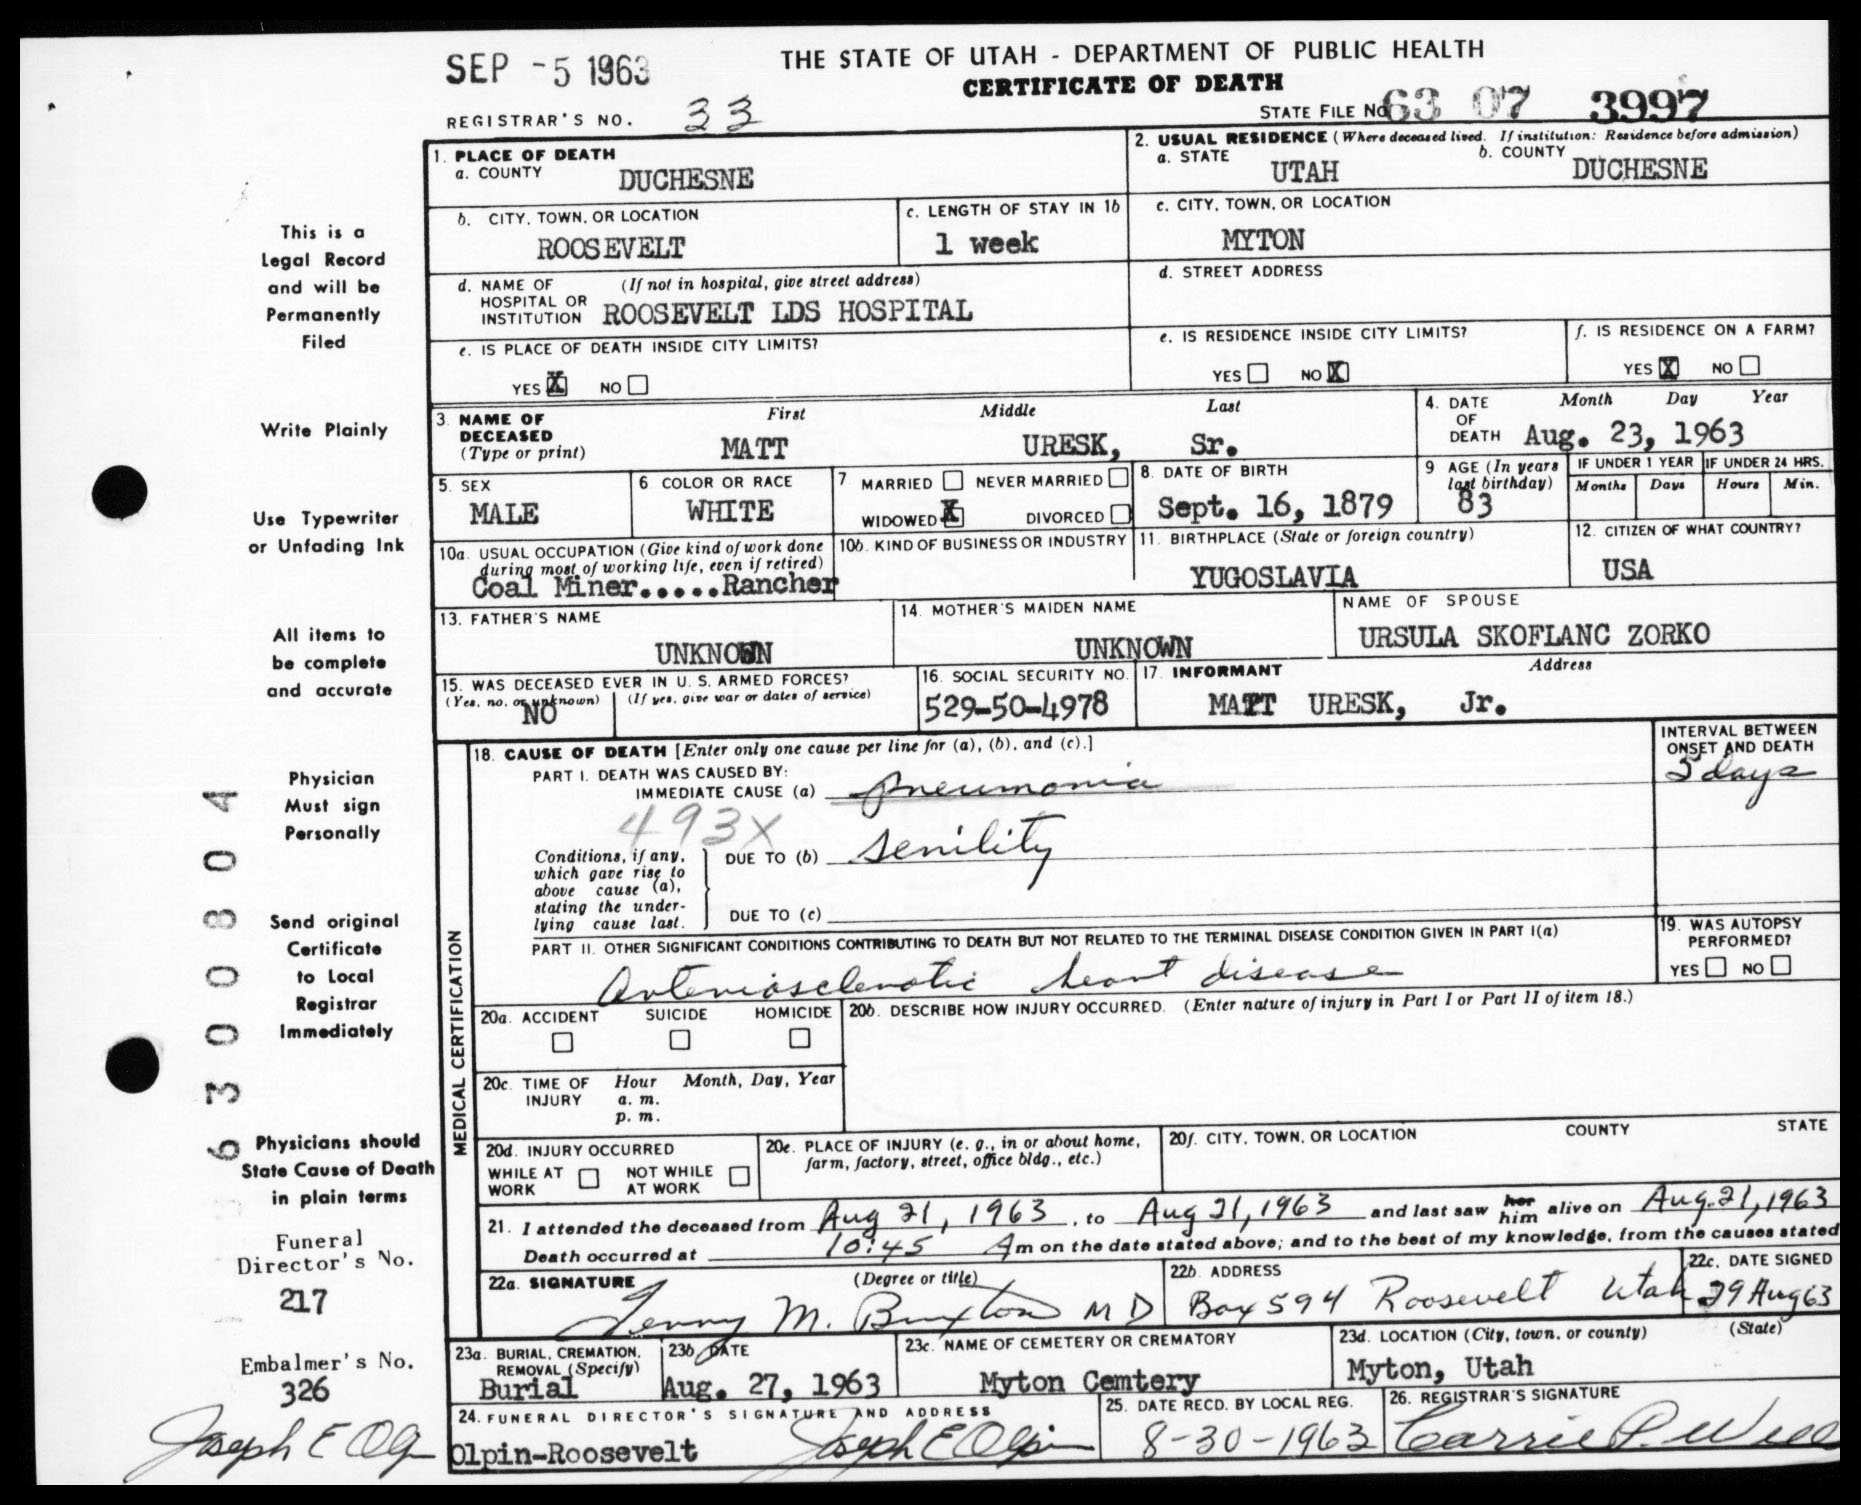 SEP -5 1963
THE STATE OF UTAH - DEPARTMENT OF PUBLIC HEALTH
CERTIFICATE OF DEATH
REGISTRAR'S NO. 33
STATE FILE NO. 63 07 3997
1. PLACE OF DEATH
a. COUNTY DUCHESNE
2. USUAL RESIDENCE (Where deceased lived. If institution: Residence before admission)
a. STATE UTAH b. COUNTY DUCHESNE
b. CITY, TOWN, OR LOCATION ROOSEVELT
c. LENGTH OF STAY IN 1b 1 week
c. CITY, TOWN, OR LOCATION MYTON
d. NAME OF HOSPITAL OR INSTITUTION (If not in hospital, give street address) ROOSEVELT LDS HOSPITAL
d. STREET ADDRESS
e. IS PLACE OF DEATH INSIDE CITY LIMITS?
YES X NO
e. IS RESIDENCE INSIDE CITY LIMITS?
YES NO X
f. IS RESIDENCE ON A FARM?
YES X NO
3. NAME OF DECEASED (Type or print)
First Middle Last
MATT URESK, Sr.
4. DATE OF DEATH Month Day Year
Aug. 23, 1963
5. SEX MALE
6 COLOR OR RACE WHITE
7 MARRIED NEVER MARRIED
WIDOWED X DIVORCED
8. DATE OF BIRTH Sept. 16, 1879
9 AGE (In years last birthday) 83
IF UNDER 1 YEAR Months Days
IF UNDER 24 HRS. Hours Min.
10a. USUAL OCCUPATION (Give kind of work done during most of working life, even if retired)
Coal Miner.....Rancher
10b. KIND OF BUSINESS OR INDUSTRY
11. BIRTHPLACE (State or foreign country) YUGOSLAVIA
12. CITIZEN OF WHAT COUNTRY? USA
13. FATHER'S NAME UNKNOWN
14. MOTHER'S MAIDEN NAME UNKNOWN
NAME OF SPOUSE URSULA SKOFLANC ZORKO
15. WAS DECEASED EVER IN U. S. ARMED FORCES?
(Yes, no, or unknown) (If yes, give war or dates of service)
NO
16. SOCIAL SECURITY NO. 529-50-4978
17. INFORMANT Address
MATT URESK, Jr.
MEDICAL CERTIFICATION
18. CAUSE OF DEATH [Enter only one cause per line for (a), (b), and (c).]
INTERVAL BETWEEN ONSET AND DEATH
PART I. DEATH WAS CAUSED BY:
IMMEDIATE CAUSE (a) pneumonia 5 days
493X
Conditions, if any, which gave rise to above cause (a), stating the underlying cause last.
DUE TO (b) senility
DUE TO (c)
PART II. OTHER SIGNIFICANT CONDITIONS CONTRIBUTING TO DEATH BUT NOT RELATED TO THE TERMINAL DISEASE CONDITION GIVEN IN PART I(a)
Arteriosclerotic heart disease
19. WAS AUTOPSY PERFORMED?
YES NO
20a. ACCIDENT SUICIDE HOMICIDE
20b. DESCRIBE HOW INJURY OCCURRED. (Enter nature of injury in Part I or Part II of item 18.)
20c. TIME OF INJURY Hour Month, Day, Year
a. m.
p. m.
20d. INJURY OCCURRED
WHILE AT WORK NOT WHILE AT WORK
20e. PLACE OF INJURY (e. g., in or about home, farm, factory, street, office bldg., etc.)
20f. CITY, TOWN, OR LOCATION COUNTY STATE
21. I attended the deceased from Aug 21, 1963, to Aug 21, 1963 and last saw her him alive on Aug. 21, 1963
Death occurred at 10:45 Am on the date stated above; and to the best of my knowledge, from the causes stated
22a. SIGNATURE (Degree or title)
M. Buxton MD
22b. ADDRESS Box 594 Roosevelt Utah
22c. DATE SIGNED 29 Aug 63
23a. BURIAL, CREMATION, REMOVAL (Specify) Burial
23b. DATE Aug. 27, 1963
23c. NAME OF CEMETERY OR CREMATORY Myton Cemtery
23d. LOCATION (City, town, or county) (State)
Myton, Utah
24. FUNERAL DIRECTOR'S SIGNATURE AND ADDRESS
Olpin-Roosevelt Joseph E Olpin
25. DATE RECD. BY LOCAL REG. 8-30-1963
26. REGISTRAR'S SIGNATURE Carrie P.
This is a
Legal Record
and will be
Permanently
Filed
Write Plainly
Use Typewriter
or Unfading Ink
All items to
be complete
and accurate
Physician
Must sign
Personally
Send original
Certificate
to Local
Registrar
Immediately
Physicians should
State Cause of Death
in plain terms
Funeral
Director's No.
217
Embalmer's No.
326
Joseph E
6300804